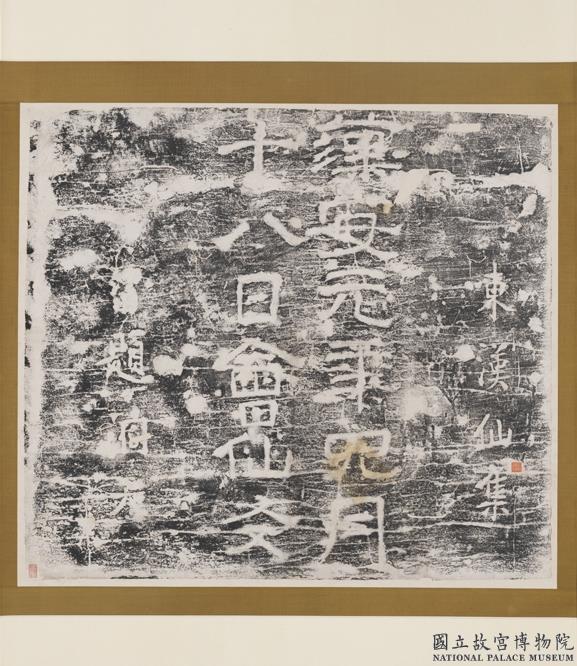 東漢仙集
漢安元年四月
十八日會仙友
留題洞天
國立故宮博物院
NATIONAL PALACE MUSEUM